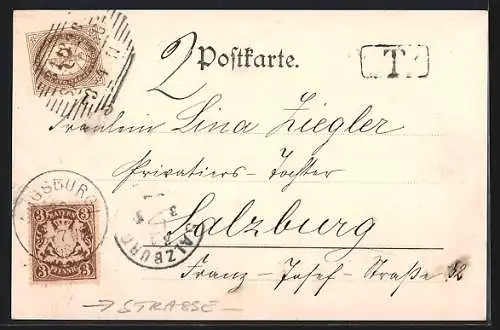 12
2 Postkarte.
T.
Fräulein Lina Ziegler
Privatiers-Tochter
Salzburg
Franz-Josef-Straße
AUGSBURG
SALZBURG
3 BAYERN 3
3 PFENNIG 3
→ STRASSE -